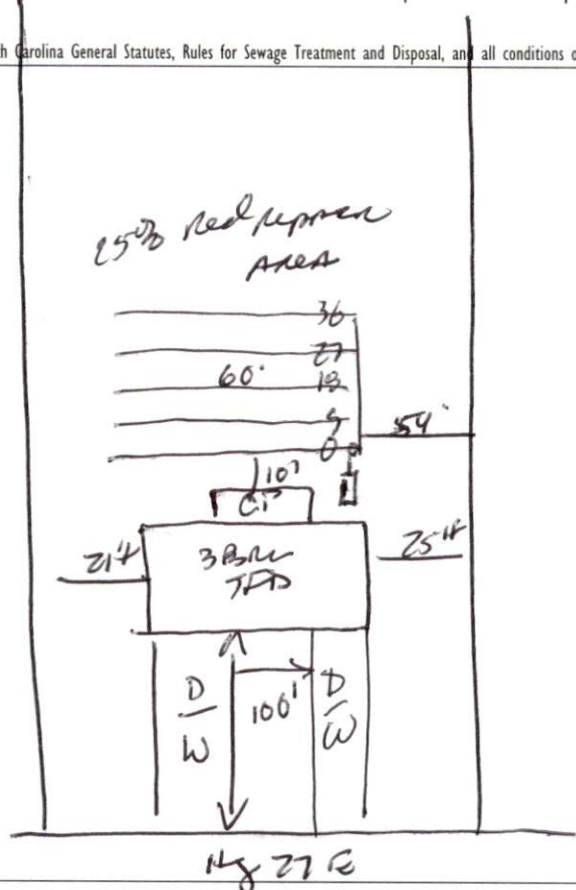 h Carolina General Statutes, Rules for Sewage Treatment and Disposal, and all conditions o
25% Red
AREA
36
27
60' 18
9
0 54'
10'
21'+ 3 BRM 25'+
D/W 100' D/W
Hy 27 E